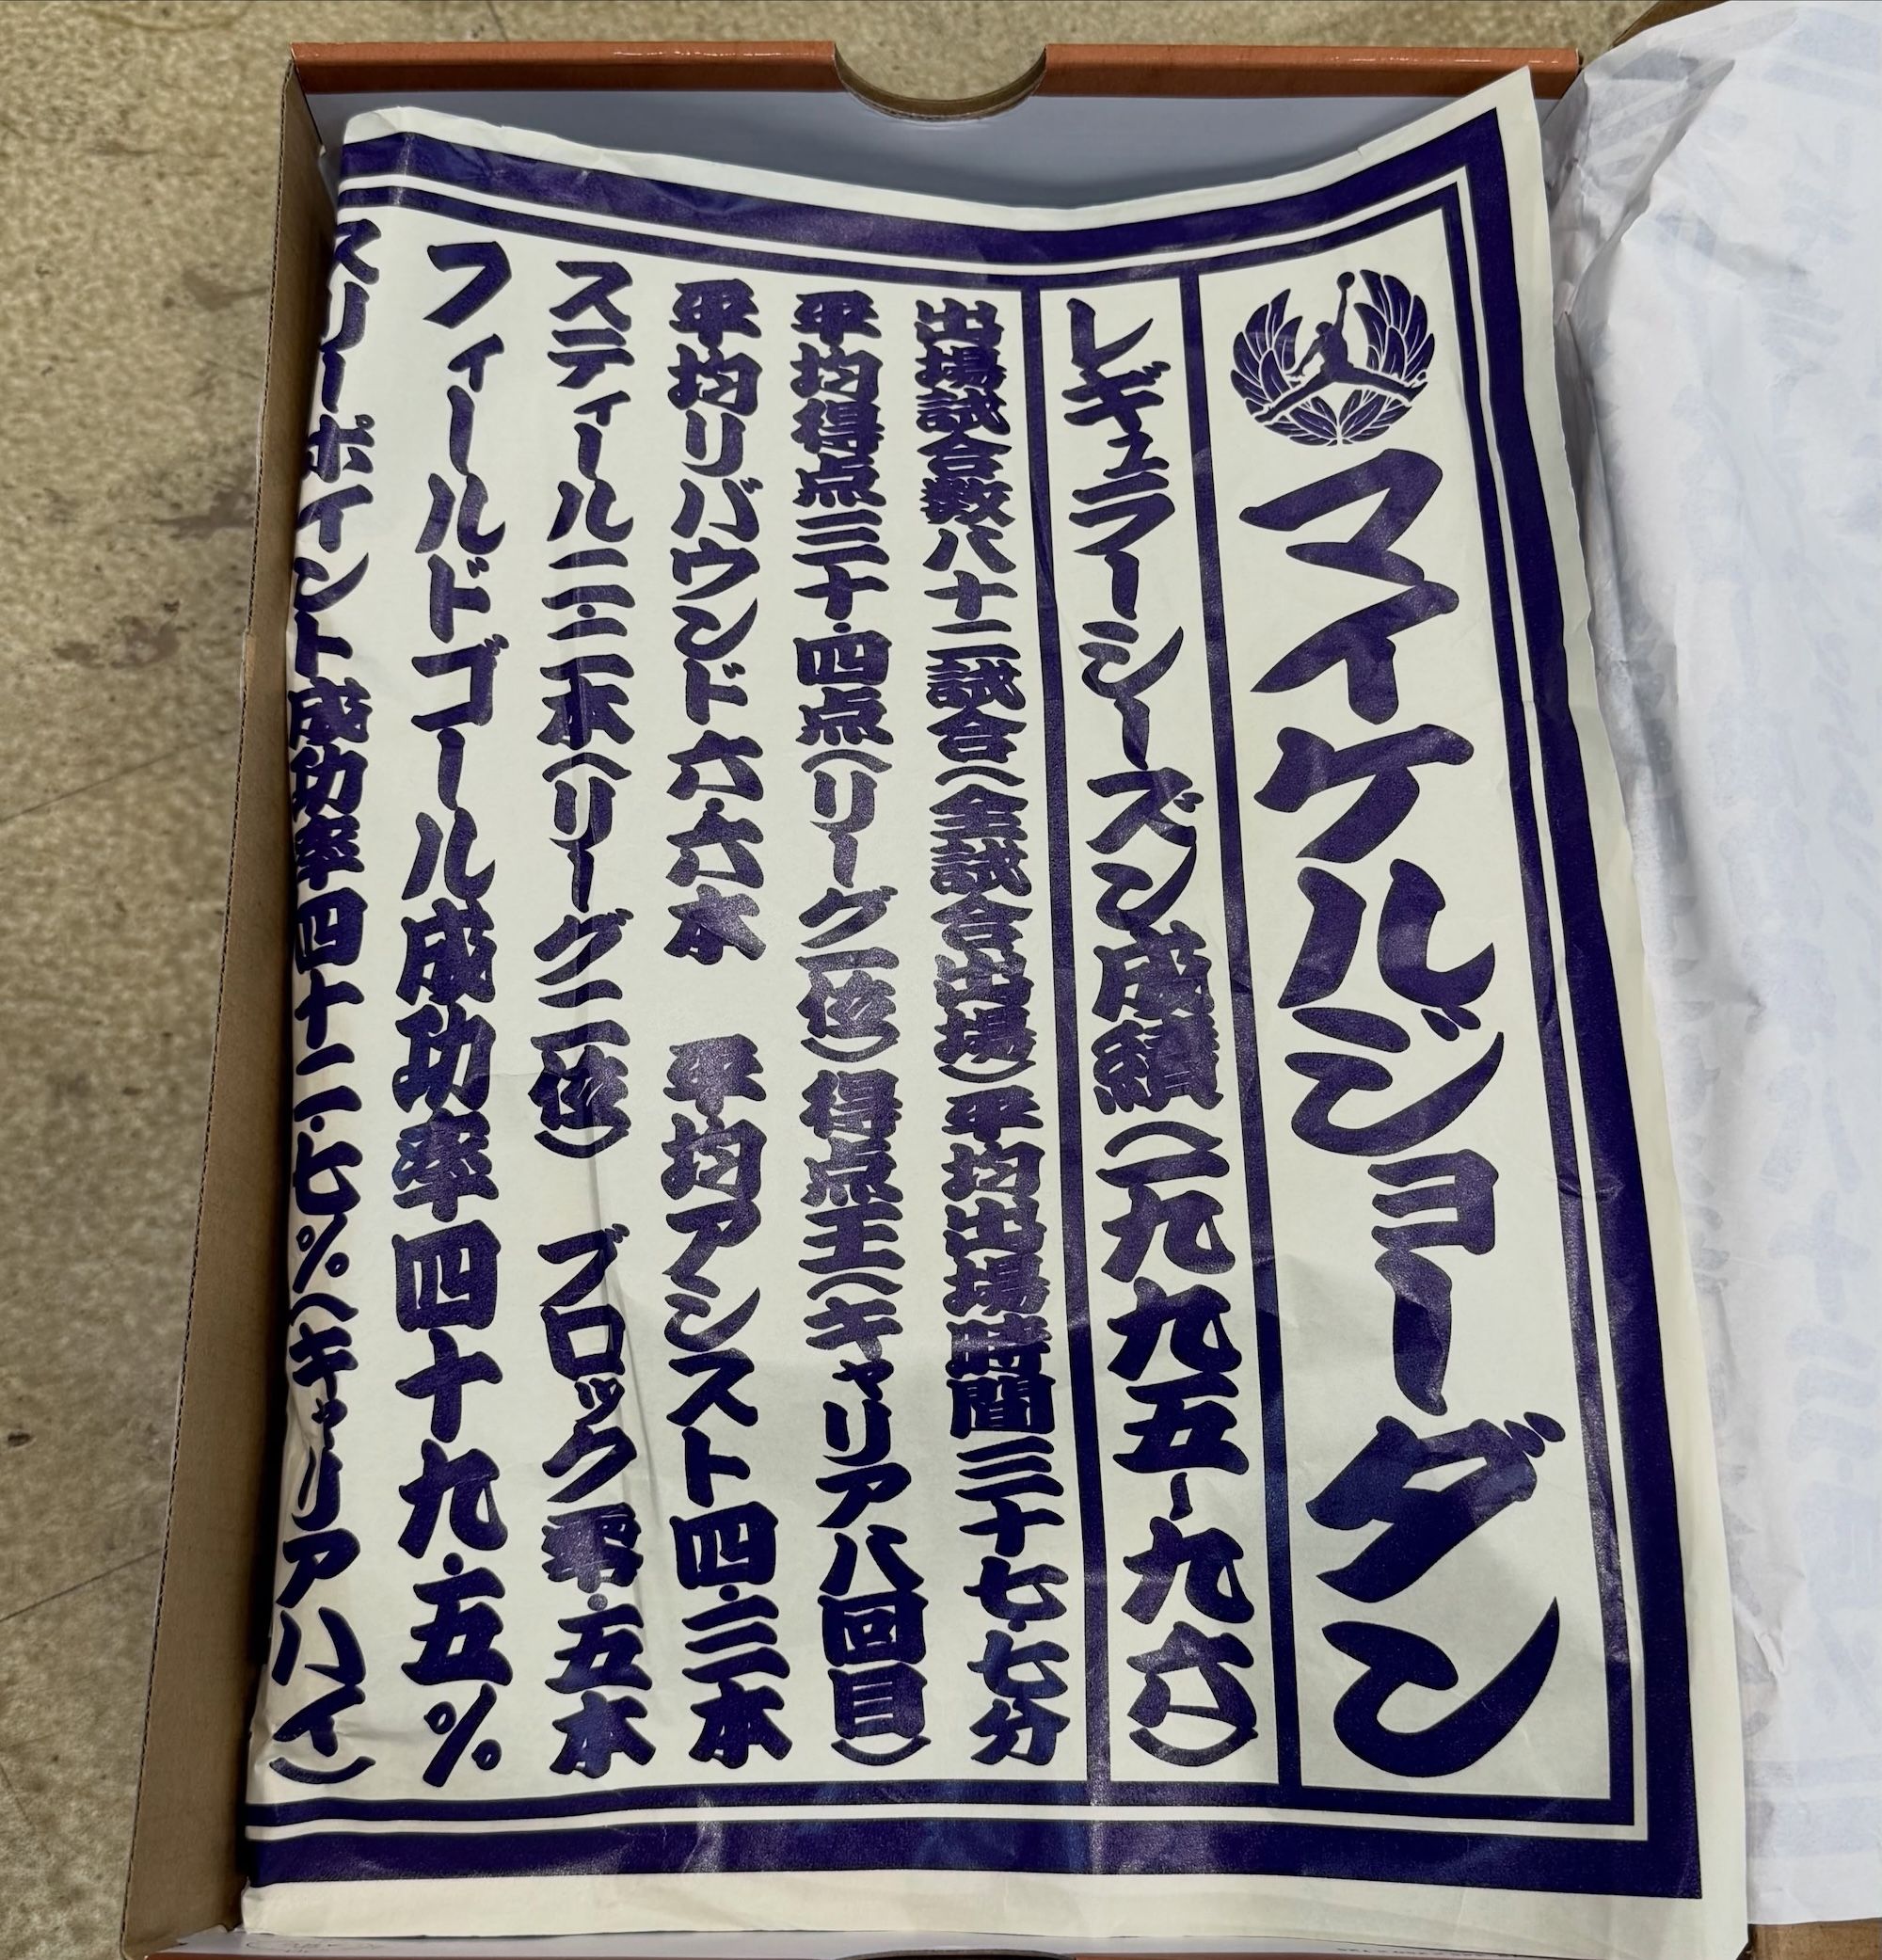 マイケルジョーダン
レギュラーシーズン成績(一九九五〜九六)
出場試合数八十二試合(全試合出場)平均出場時間三十七・七分
平均得点三十・四点(リーグ一位)得点王(キャリア八回目)
平均リバウンド六・六本 平均アシスト四・三本
スティール二・二本(リーグ二位) ブロック零・五本
フィールドゴール成功率四十九・五%
スリーポイント成功率四十二・七%(キャリアハイ)